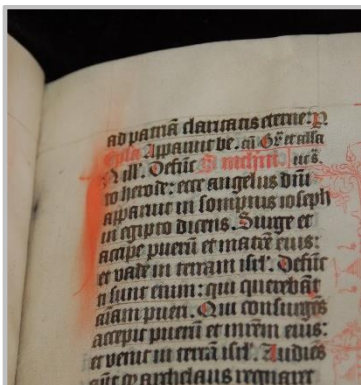 ad patriā claritatis eterne: P
Ep̄la. Apparuit be. cū Gr̄ et alla
Defūc
to herode: ecce angelus dn̄i
apparuit in sompnis ioseph
in egipto dicens. Surge et
accipe puerū et matrē eius:
et vade in terram isrl'. Defūc
ti sunt enim: qui querebāt
aīam pueri. Qui consurgēs
accepit puerū et mrēm eius:
et venit in terrā isrl'. Audiēs
aūt q̄ archelaus regnaret